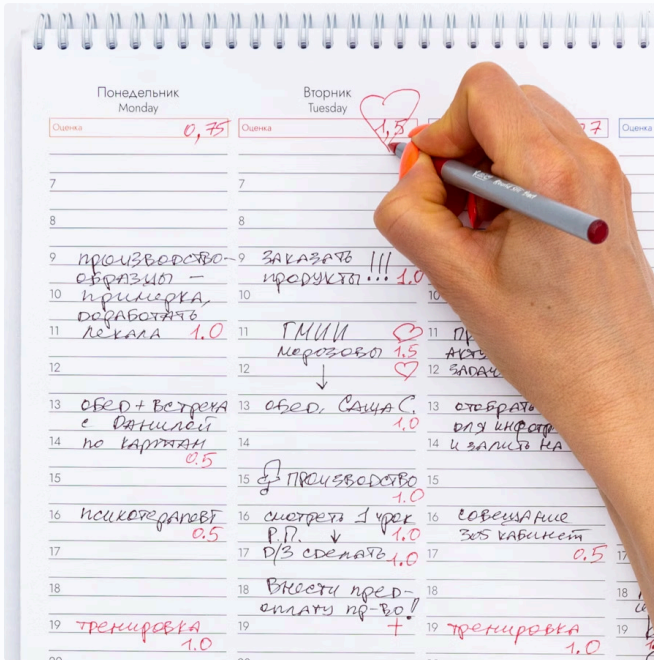 Понедельник
Monday
Оценка 0,75
7
8
9 производство-
образцы –
10 примерка,
доработать
11 лекала 1.0
12
13 обед + встреча
с Данилой
14 по картам
0.5
15
16 психотерапевт
0.5
17
18
19 тренировка
1.0
Вторник
Tuesday
Оценка 1,5
7
8
9 заказать
продукты!!! 1.0
10
11 ГМИИ
Морозовы 1.5
12 ↓
13 обед, Саша С.
1.0
14
15 производство
1.0
16 смотреть 1 урок
Р.П. ↓ 1.0
17 Д/З сделать 1.0
18 Внести пред-
оплату пр-во!
19 +
7
10
11
12
13 отобрать
для
14 и залить на
15
16 совещание
305 кабинет
17 0.5
18
19 тренировка
1.0
Оценка
17
18
19